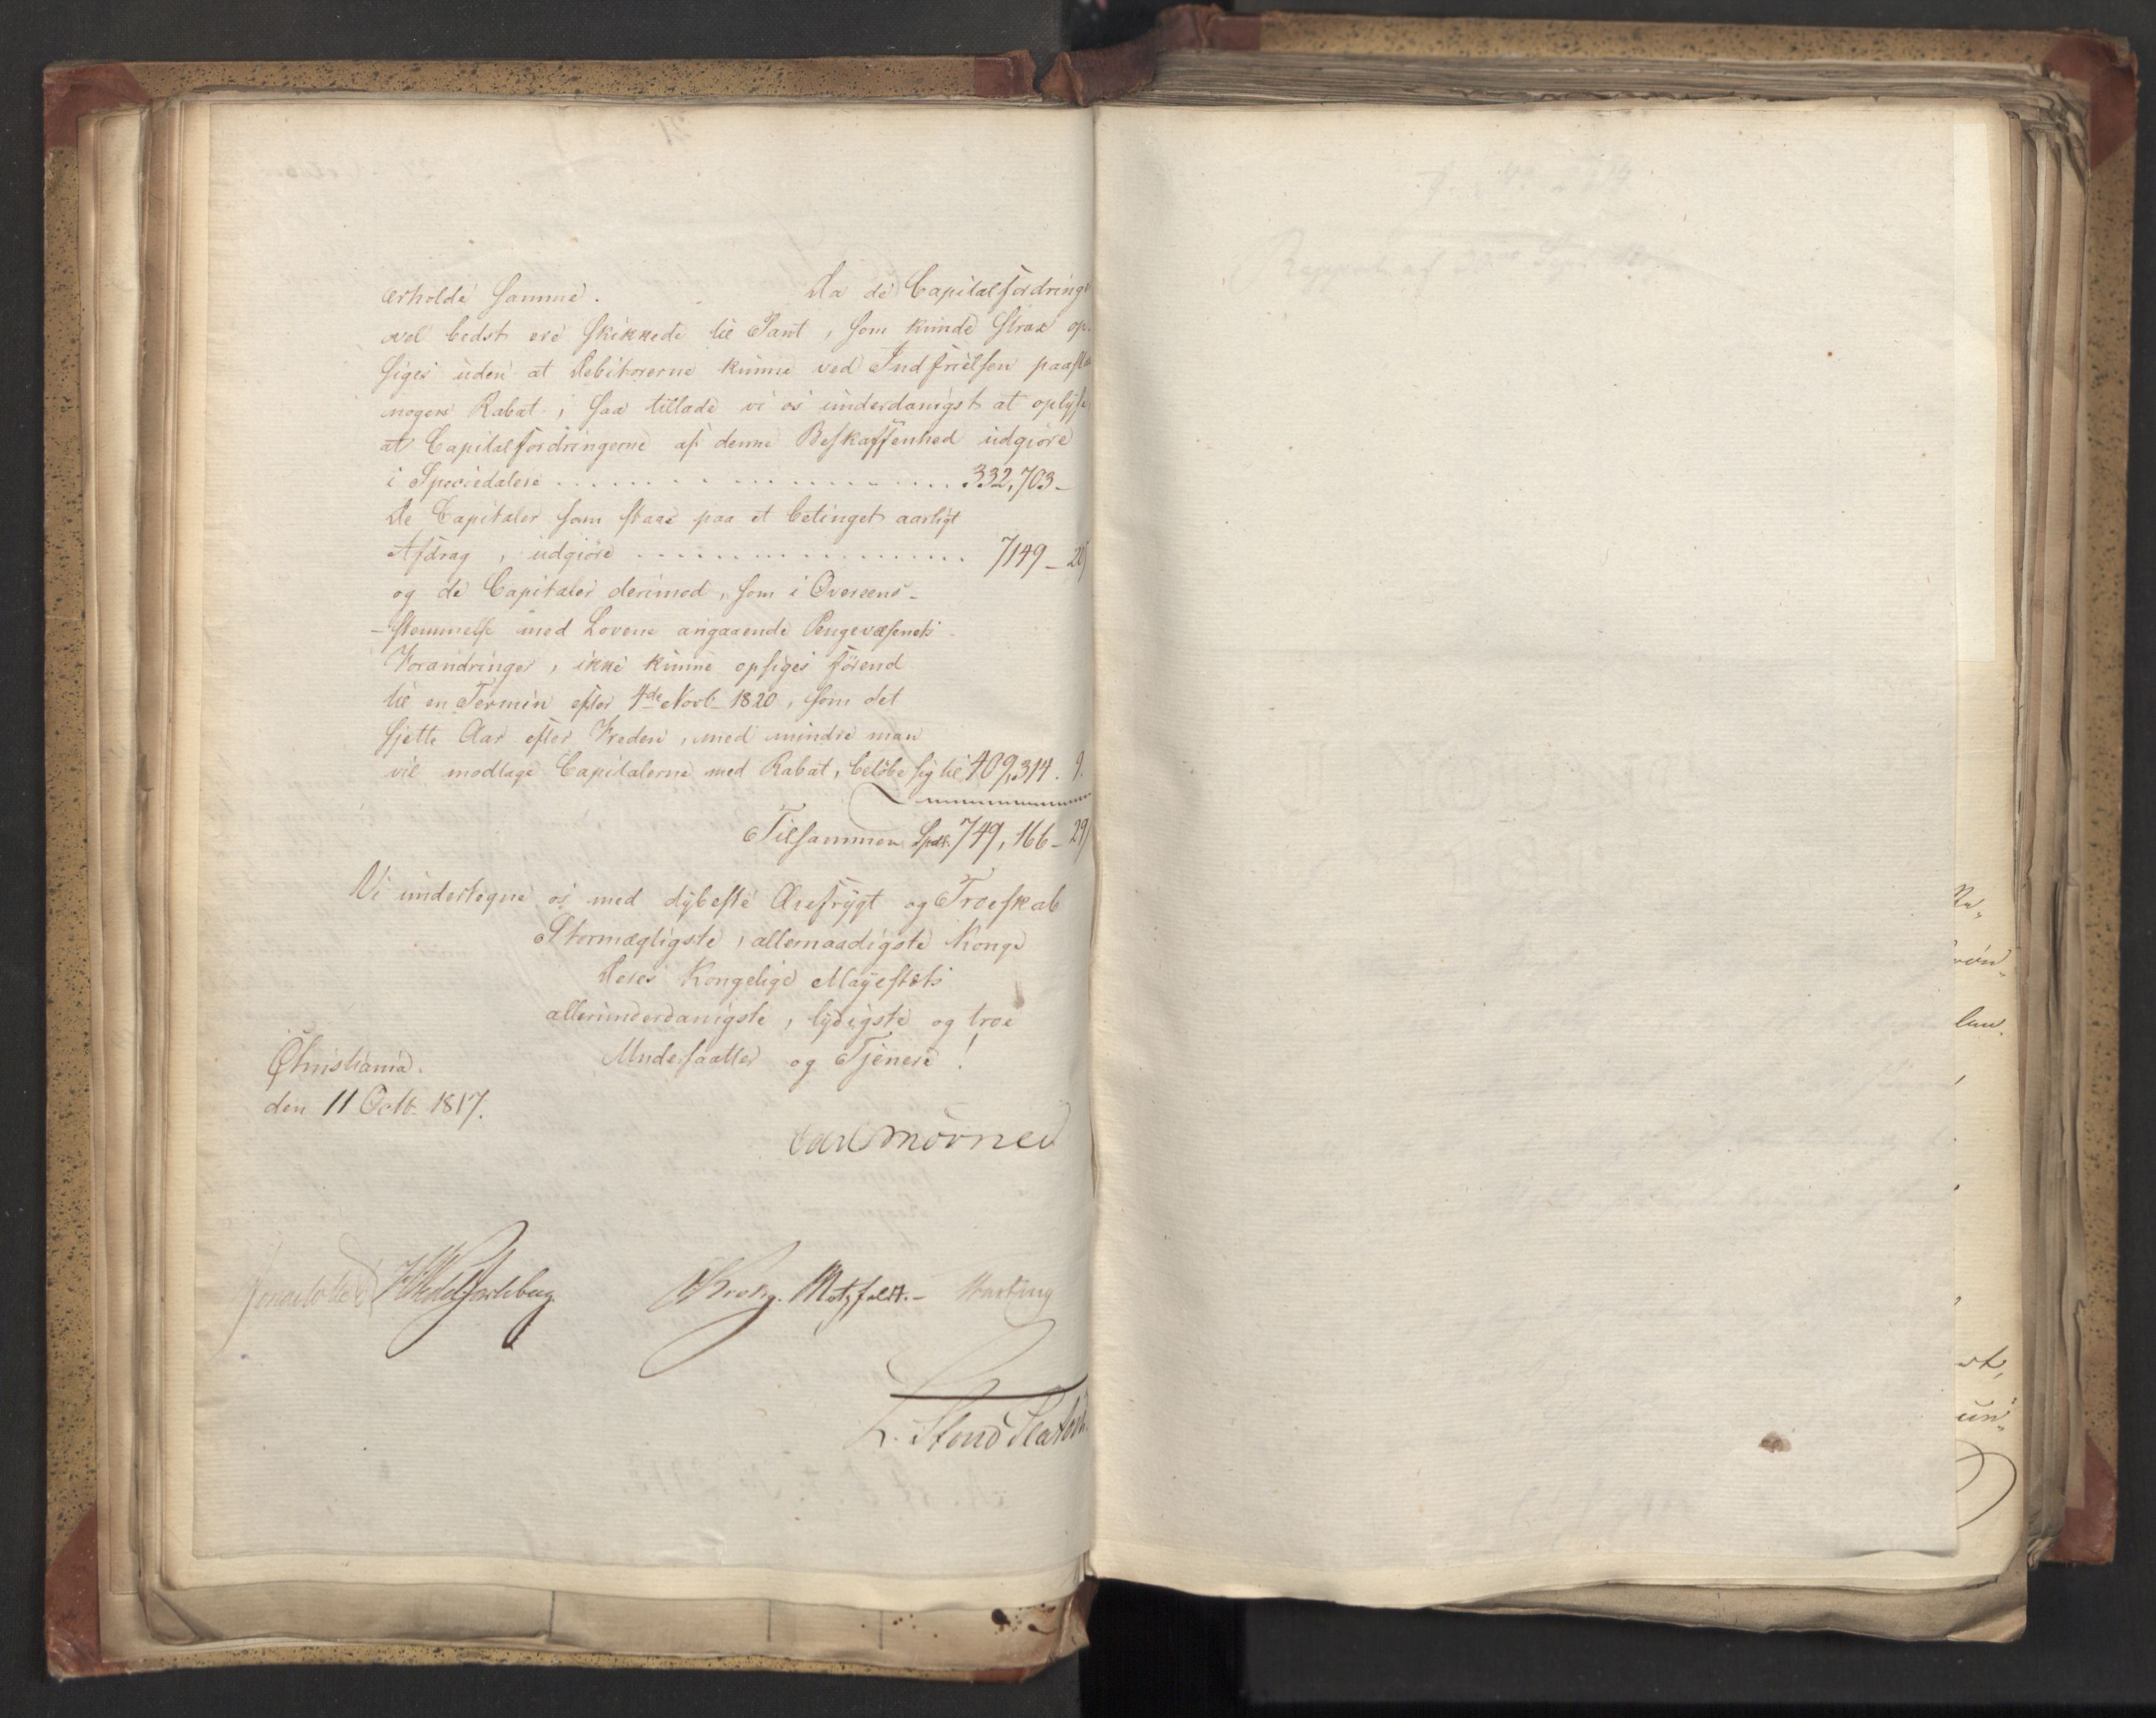 erholde samme. Da de Capitalfordringe
vel bedst ere skikkede til Pant, som kunde strax op-
siges uden at Debitorerne kunne ved Indfrielsen paastaa
nogen Rabat; saa tillade vi os underdanigst at oplyse
at Capitalfordringerne af denne Beskaffenhed udgjöre
i Speciedalere . . . . . . . . . . 332,703 -
De Capitaler som staae paa et betinget aarligt
Afdrag, udgiöre . . . . . . . . . . 7149 - 20
og de Capitaler derimod, som i Overeens-
-stemmelse med Lovene angaaende Pengevæsenets
Forandringer, ikke kunne opsiges förend
til en Termin efter 4de Novb. 1820, som det
sjette Aar efter Freden, med mindre man
vil modtage Capitalerne med Rabat, belöbe sig til 409,314. 9.
Tilsammen Spdlr. 749,166 - 29
Vi undertegne os med dybeste Ærefrygt og Troeskab
Stormægtigste, allernaadigste Konge
Deres Kongelige Mayestæts
allerunderdanigste, lydigste og troe
Undersaatter og Tjenere!
Christiania.
den 11 Octb. 1817.
Carl Mörner
HWedel Jarlsberg Krohg. Motzfeldt.-
L. Stoud Platou
Rapport af